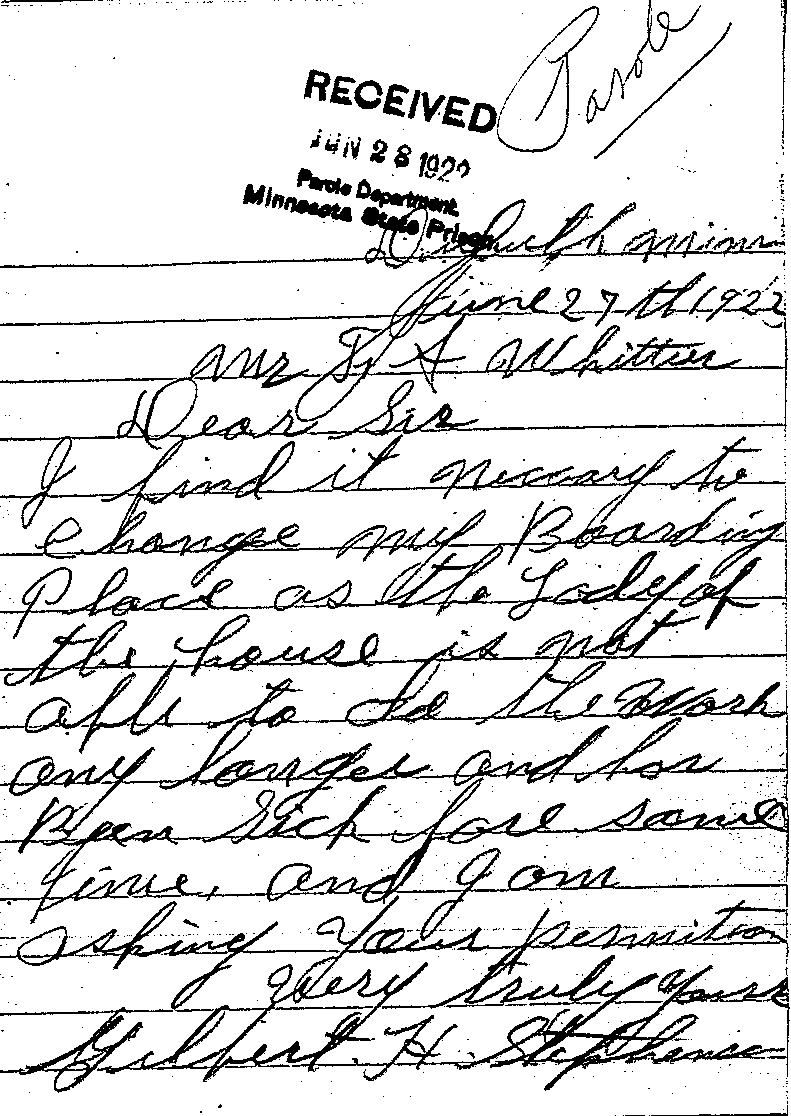 Parole
RECEIVED
JUN 28 1922
Parole Department.
Minnesota State Prison
Duluth Minn
June 27th 1922
Mr F A Whittier
Dear Sir
I find it neccary to
change my Boarding
Place as the Lady of
the house is not
able to do the Work
any longer and has
Been Sick fore some
time, and I am
asking Your permition
Very truly Yours
Gilbert H. Stephenson